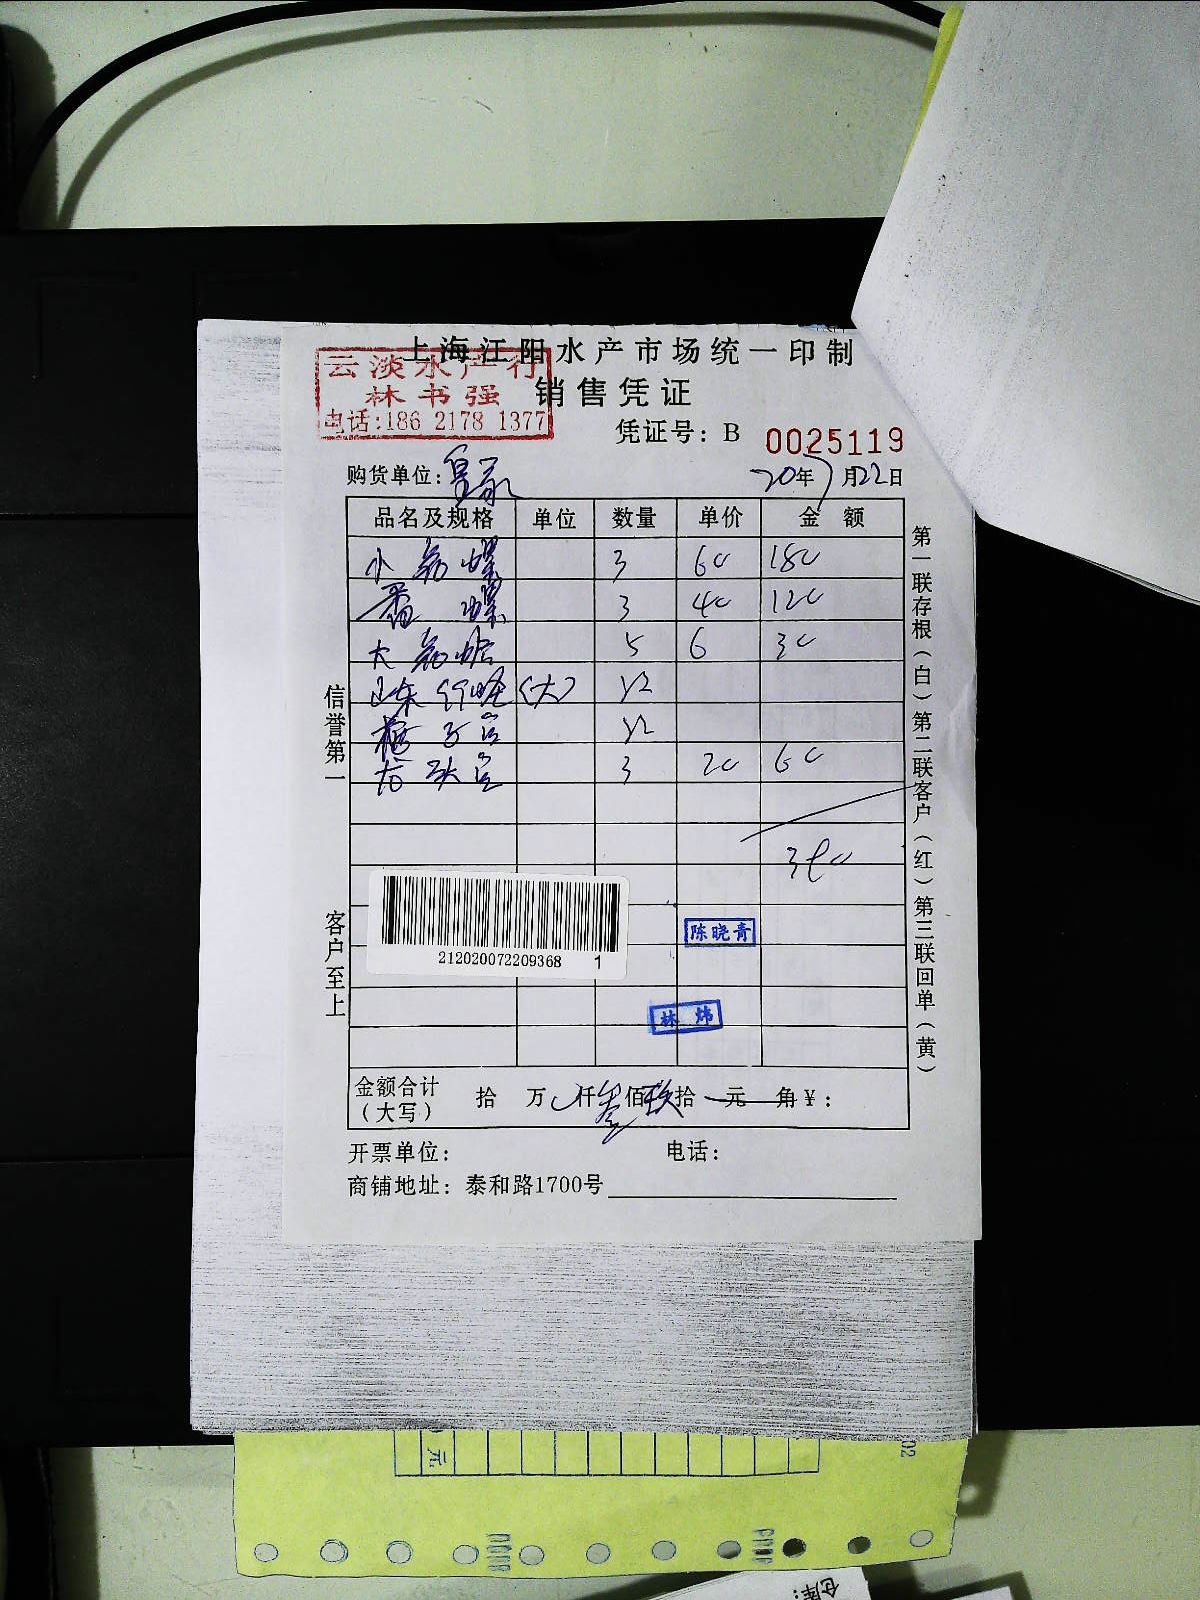 上海江阳水产市场统一印制
云淡水产行
林书强
电话:186 2178 1377
销售凭证
凭证号: B 0025119
购货单位:
20年7月22日
品名及规格 单位 数量 单价 金额
小 螺 3 60 180
螺 3 40 120
大 5 6 30
山东 (大)
3 20 60
390
信誉第一
客户至上
第一联存根(白)第二联客户(红)第三联回单(黄)
212020072209368 1
陈晓青
林 炜
金额合计(大写) 拾 万 仟叁佰玖拾 元 角¥:
开票单位: 电话:
商铺地址: 泰和路1700号
元
02
仓库: